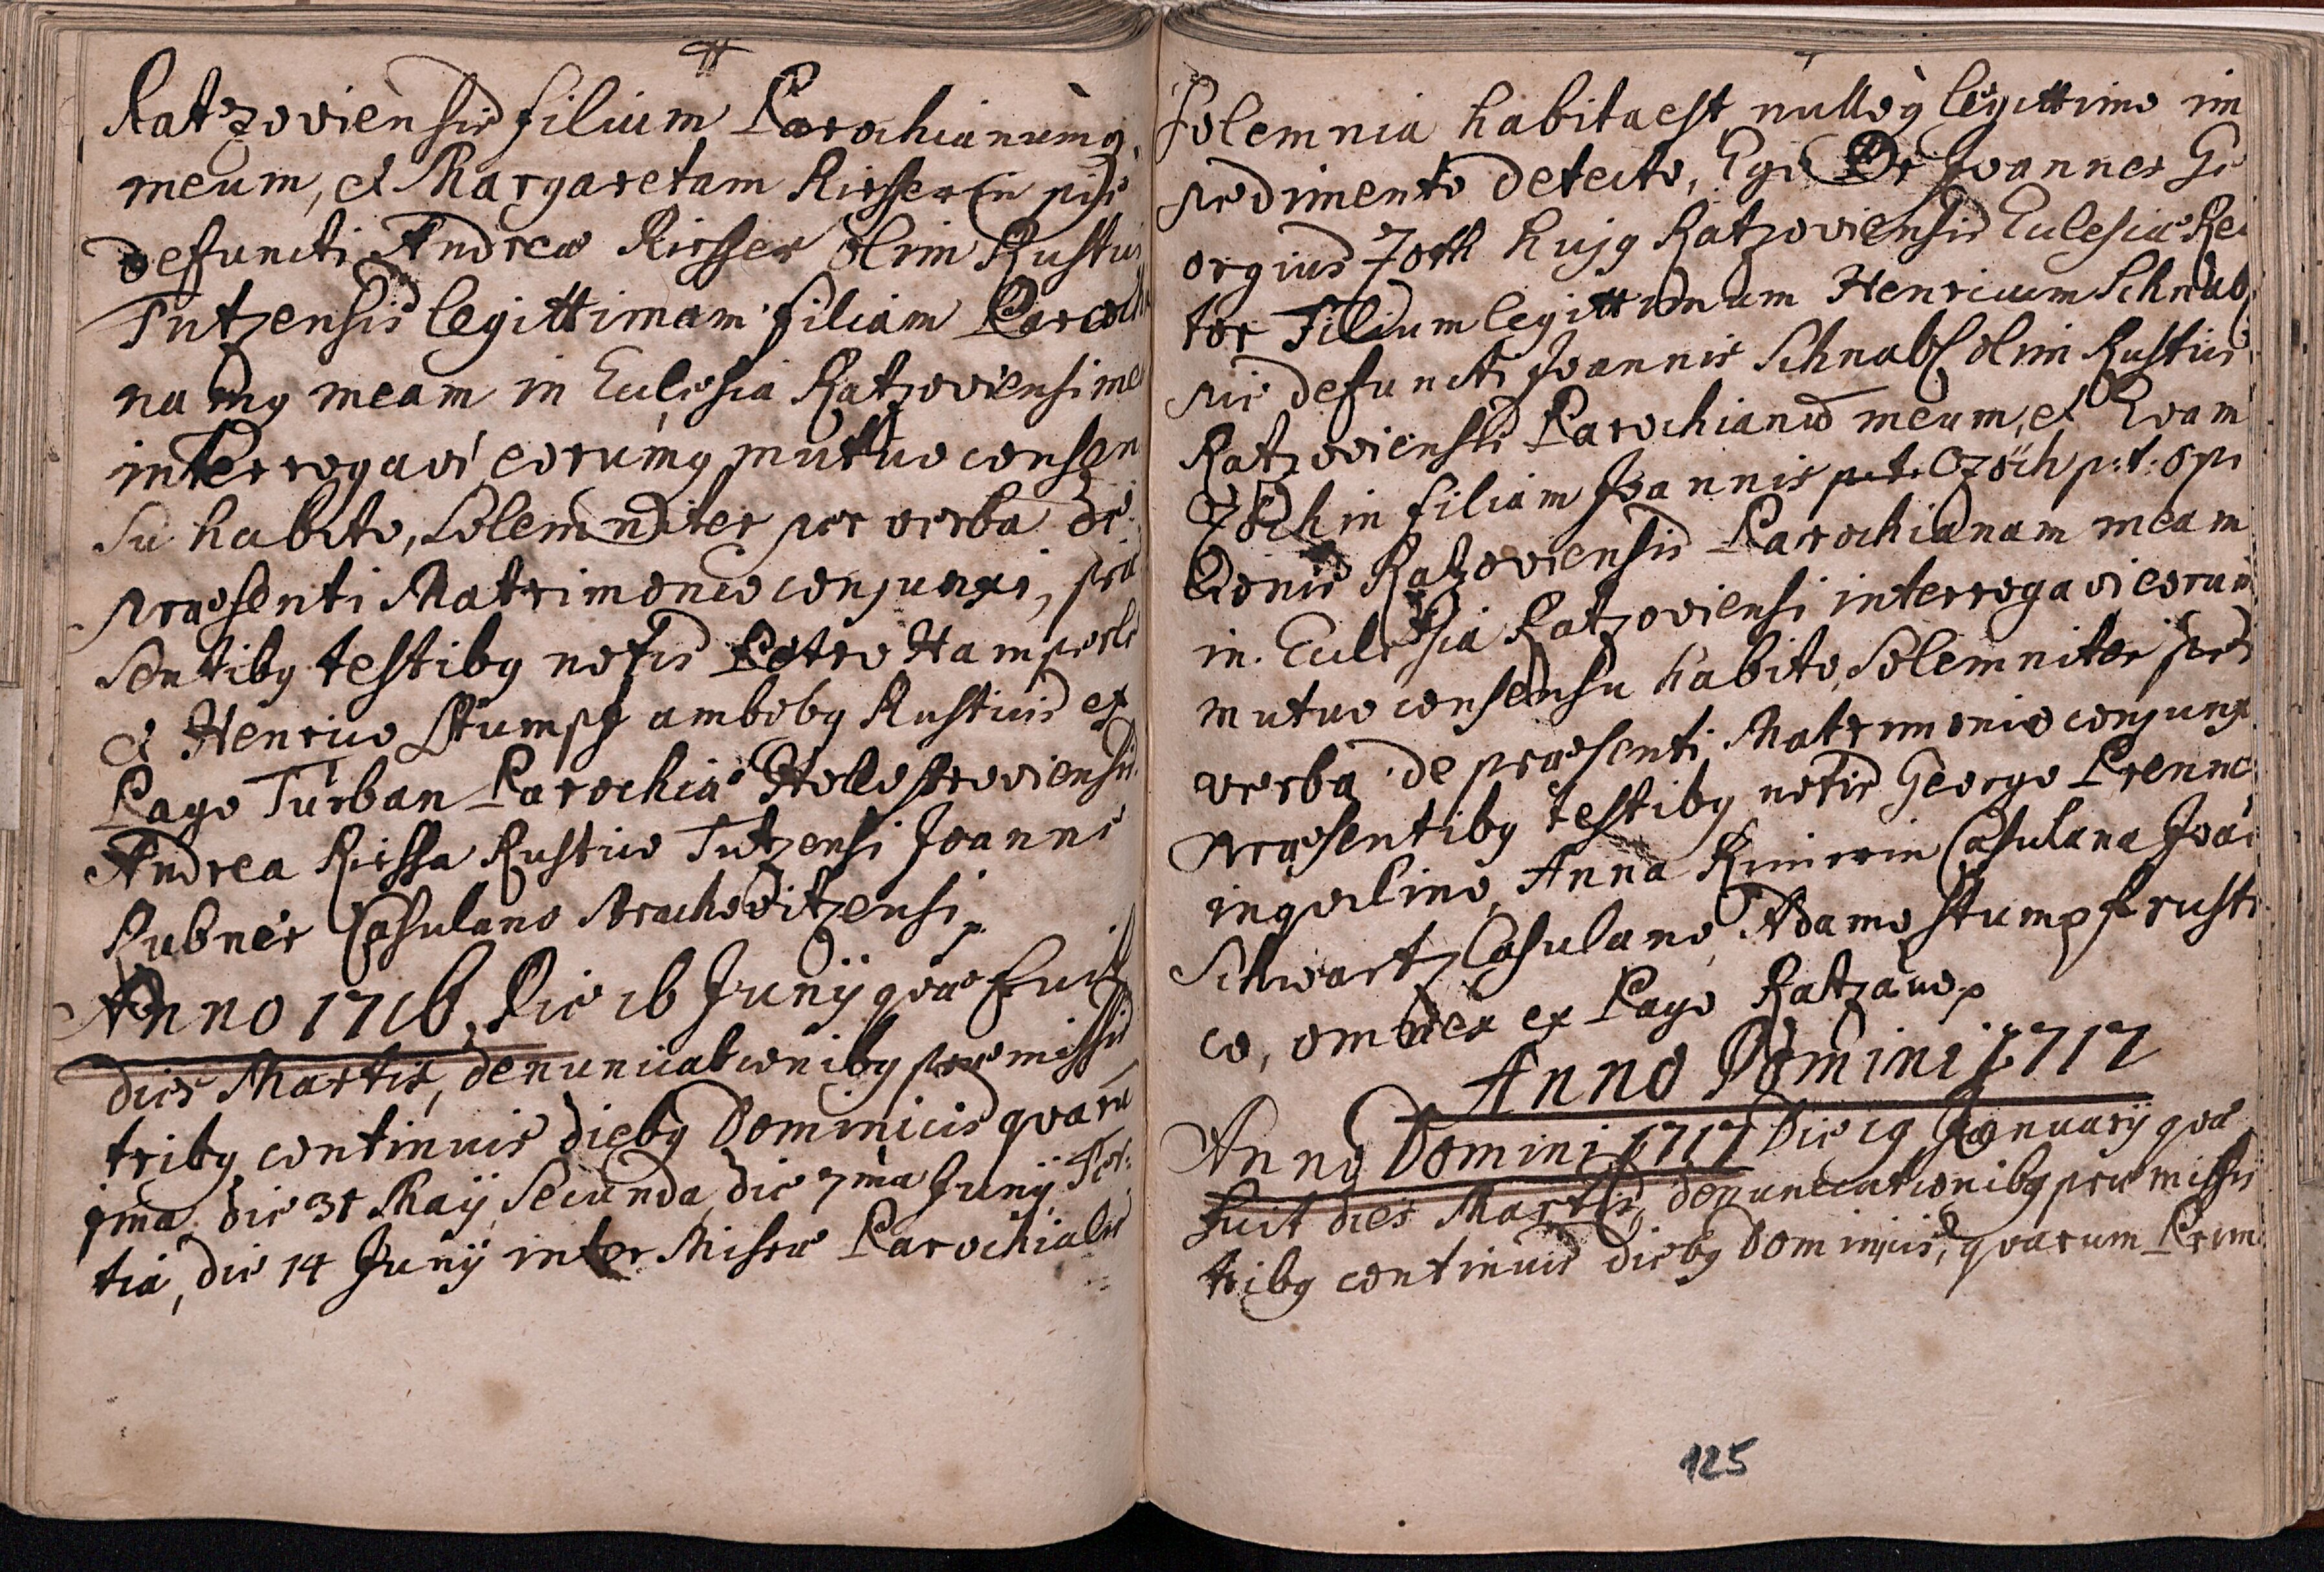 Ratzoviensis filium Parochianumq
meum, et Margaretam Riesserin pie
defuncti Andreae Riesser olim Rustici
Tutzensis legittimam filiam Parochi
namq meam in Ecclesia Ratzoviensi me
interrogavi eorumq mutuo consen
su habito, Solemniter per verba de
praesenti Matrimonio conjunxi, prae
sentibq testibq notis Petro Hamperle
et Henrico Stumpf ambobq Rusticis ex
Pago Turban Parochiae Hollostroviensis
Andrea Riessa Rustico Tutzensi Joanne
Rubner Casulano Brachovitzensi
Anno 1716, Die 16 Junij quae fuit
dies Martis, denunciationibq praemissis
tribq continuis diebq Dominicis quaru
prima die 31 Maij Secunda die 7ma Junij Ter:
tia, die 14 Junij inter Missae Parochialis
Solemnia habita est nulloq legittimo im
pedimento detecto, Ego Dr Joannes Ge
orgius Toth hujq Ratzoviensis Ecclesiae Rec
tor Filium legittimum Henricum Schnabl
pie defuncti Joannis Schnabl olim Rustici
Ratzoviensis Parochianum meum, et Evam
Czöchin filiam Joannis p:t: Czöch p:t: opi
lionis Ratzoviensis Parochianam meam
in Ecclesia Ratzoviensi interrogavi eorum
mutuo consensu habito, Solemniter per
verba de praesenti Matrimonio conjunx
praesentibq testibq notis Georgo Prenne
inqvilino, Anna Casulana Joan
Schwartz Casulano, Adamo Stumpf rusti
co, omnes ex Pago Ratzau
Anno Domini 1717
Anno Domini 1717 Die 19 Januarij qua
fuit dies Martis, denunciationibq praemissis
tribq continuis diebq Dominicis, quarum Prim
125